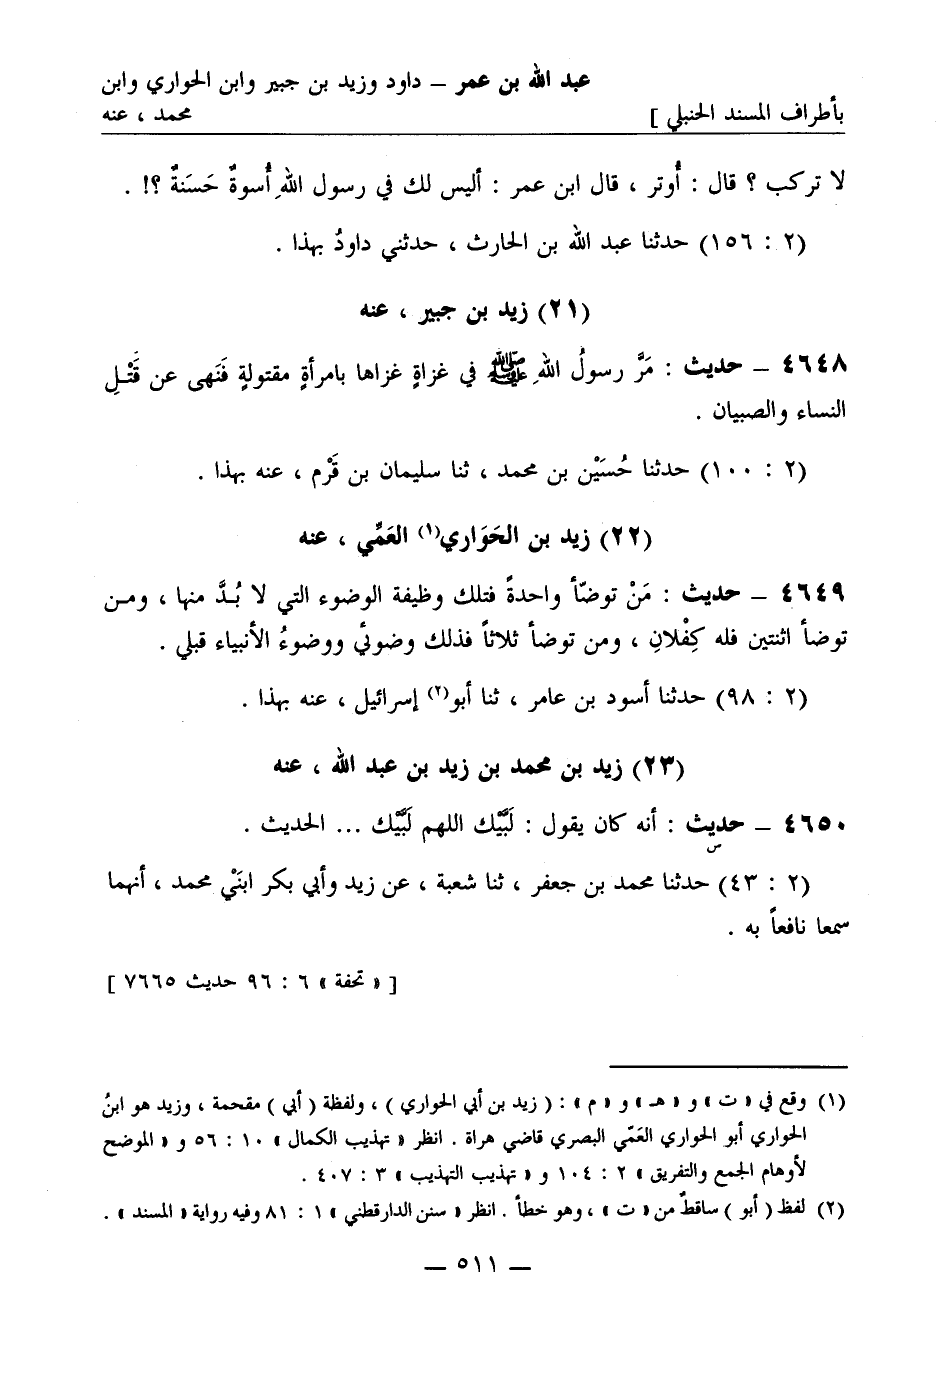 عبد الله بن عمر – داود وزيد بن جبير وابن الحواري وابن
بأطراف المسند الحنبلي ] محمد ، عنه
لا تركب ؟ قال : أُوتر ، قال ابن عمر : أليس لك في رسول اللهِ أُسوةٌ حَسَنةٌ ؟! .
(٢ : ١٥٦) حدثنا عبد الله بن الحارث ، حدثني داودُ بهذا .
(٢١) زيد بن جبير ، عنه
٤٦٤٨ – حديث : مَرَّ رسولُ اللهِ ﷺ في غزاةٍ غزاها بامرأةٍ مقتولةٍ فَنَهى عن قَتْلِ
النساء والصبيان .
(٢ : ١٠٠) حدثنا حُسَيْن بن محمد ، ثنا سليمان بن قَرْم ، عنه بهذا .
(٢٢) زيد بن الحَوَاري(١) العَمِّي ، عنه
٤٦٤٩ – حديث : مَنْ توضّأ واحدةً فتلك وظيفة الوضوء التي لا بُدَّ منها ، ومن
توضأ اثنتين فله كِفْلانِ ، ومن توضأ ثلاثاً فذلك وضوئي ووضوءُ الأنبياء قبلي .
(٢ : ٩٨) حدثنا أسود بن عامر ، ثنا أبو(٢) إسرائيل ، عنه بهذا .
(٢٣) زيد بن محمد بن زيد بن عبد الله ، عنه
٤٦٥٠ – حديث : أنه كان يقول : لَبَّيْك اللهم لَبَّيْك ... الحديث .
س
(٢ : ٤٣) حدثنا محمد بن جعفر ، ثنا شعبة ، عن زيد وأبي بكر ابنَيْ محمد ، أنهما
سمعا نافعاً به .
[ « تحفة » ٦ : ٩٦ حديث ٧٦٦٥ ]
(١) وقع في « ت » و « هـ » و « م » : ( زيد بن أبي الحواري ) ، ولفظة ( أبي ) مقحمة ، وزيد هو ابنُ
الحواري أبو الحواري العَمّي البصري قاضي هراة . انظر « تهذيب الكمال » ١٠ : ٥٦ و « الموضح
لأوهام الجمع والتفريق » ٢ : ١٠٤ و « تهذيب التهذيب » ٣ : ٤٠٧ .
(٢) لفظ ( أبو ) ساقطٌ من « ت » ، وهو خطأ . انظر « سنن الدارقطني » ١ : ٨١ وفيه رواية « المسند » .
– ٥١١ –